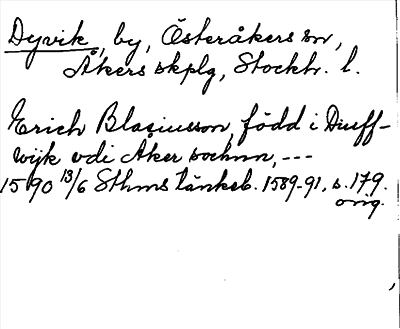 Dyvik, by, Österåkers sn,
Åkers skplg, Stockh. l.
Erich Blasiusson, född i Diuff-
wijk vdi Aker sochnn, ---
1590 13/6 Sthms tänkeb. 1589-91, s. 179.
orig.